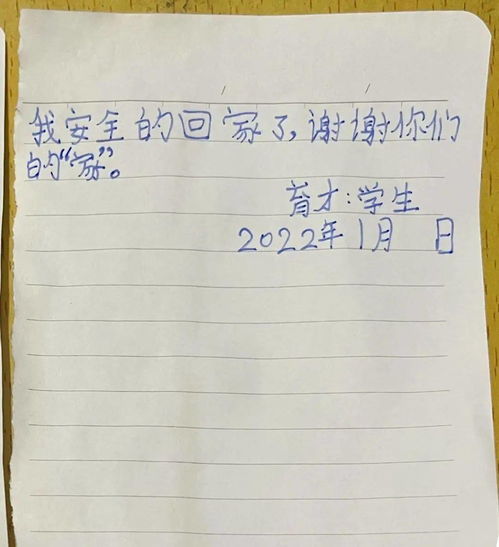 我安全的回家了,谢谢你们
的“家”。
育才:学生
2022年1月 日